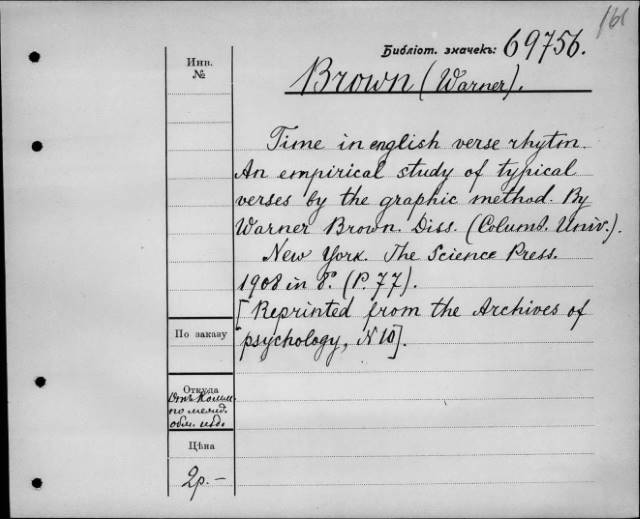 161
Библіот. значекъ: 69756.
Инв.
№
Brown (Warner).
Time in english verse rhytm.
An empirical study of typical
verses by the graphic method. By
Warner Brown. Diss. (Columb. Univ.).
New York. The Science Press.
1908 in 8º. (P. 77).
[Reprinted from the Archives of
psychology, N 10].
По заказу
Откуда
Отъ Комм.
по межд.
обм. изд.
Цѣна
2р.—